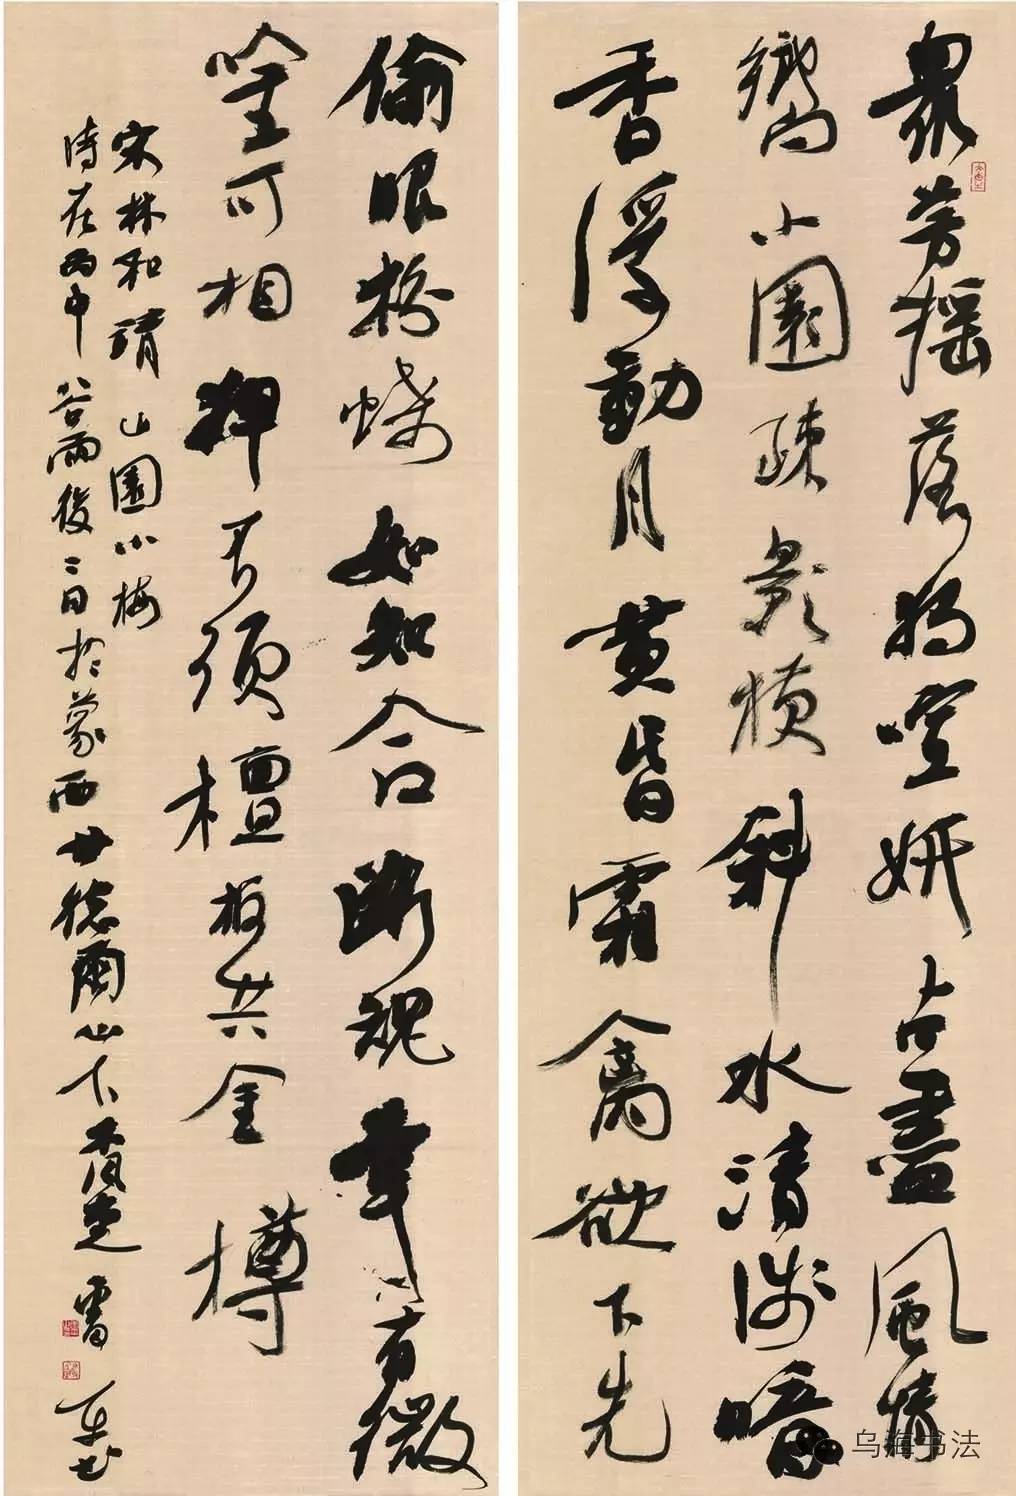 衆芳摇落獨喧妍占盡風情
嚮小園疎影横斜水清淺暗
香浮動月黄昏霜禽欲下先
偷眼粉蝶如知合斷魂幸有微
唫可相狎不須檀板共金樽
宋林和靖 山園小梅
時在丙申谷雨後二日於蒙西甘德爾山下
乌海书法